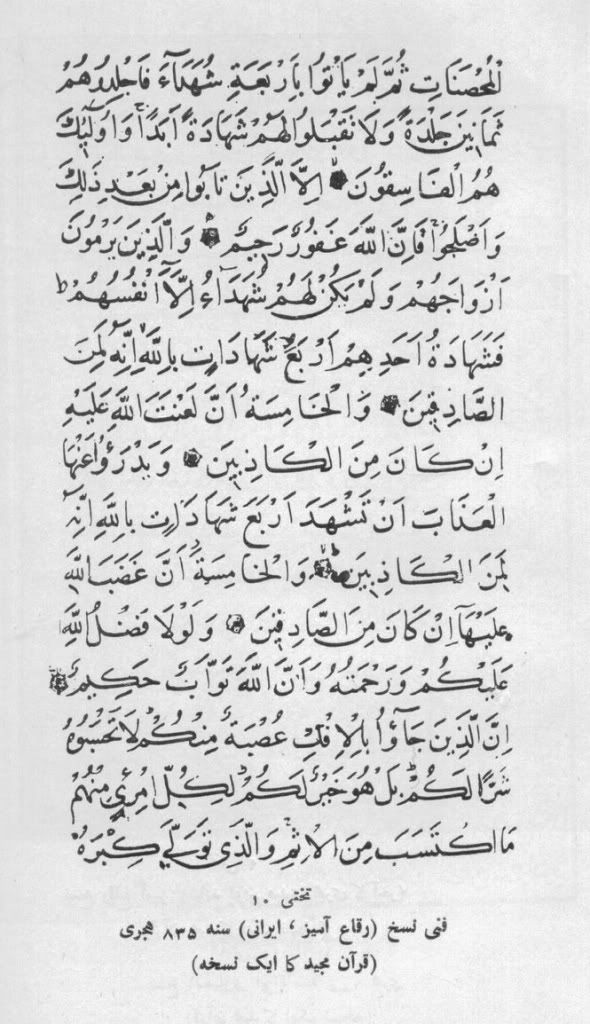 الْمُحْصَنَاتِ ثُمَّ لَمْ يَأْتُوا بِأَرْبَعَةِ شُهَدَاءَ فَاجْلِدُوهُمْ
ثَمَانِينَ جَلْدَةً وَلَا تَقْبَلُوا لَهُمْ شَهَادَةً أَبَدًا وَأُولَٰئِكَ
هُمُ الْفَاسِقُونَ إِلَّا الَّذِينَ تَابُوا مِنْ بَعْدِ ذَٰلِكَ
وَأَصْلَحُوا فَإِنَّ اللَّهَ غَفُورٌ رَحِيمٌ وَالَّذِينَ يَرْمُونَ
أَزْوَاجَهُمْ وَلَمْ يَكُنْ لَهُمْ شُهَدَاءُ إِلَّا أَنْفُسُهُمْ ط
فَشَهَادَةُ أَحَدِهِمْ أَرْبَعُ شَهَادَاتٍ بِاللَّهِ إِنَّهُ لَمِنَ
الصَّادِقِينَ وَالْخَامِسَةُ أَنَّ لَعْنَتَ اللَّهِ عَلَيْهِ
إِنْ كَانَ مِنَ الْكَاذِبِينَ وَيَدْرَؤُا عَنْهَا
الْعَذَابَ أَنْ تَشْهَدَ أَرْبَعَ شَهَادَاتٍ بِاللَّهِ إِنَّهُ
لَمِنَ الْكَاذِبِينَ وَالْخَامِسَةَ أَنَّ غَضَبَ اللَّهِ
عَلَيْهَا إِنْ كَانَ مِنَ الصَّادِقِينَ وَلَوْلَا فَضْلُ اللَّهِ
عَلَيْكُمْ وَرَحْمَتُهُ وَأَنَّ اللَّهَ تَوَّابٌ حَكِيمٌ
إِنَّ الَّذِينَ جَاؤُا بِالْإِفْكِ عُصْبَةٌ مِنْكُمْ لَا تَحْسَبُوهُ
شَرًّا لَكُمْ بَلْ هُوَ خَيْرٌ لَكُمْ لِكُلِّ امْرِئٍ مِنْهُمْ
مَا اكْتَسَبَ مِنَ الْإِثْمِ وَالَّذِي تَوَلَّىٰ كِبْرَهُ
تختی ۱۰
فنی نسخ (رقاع آمیز ، ایرانی) سنه ۸۳۵ هجری
(قرآن مجید کا ایک نسخه)